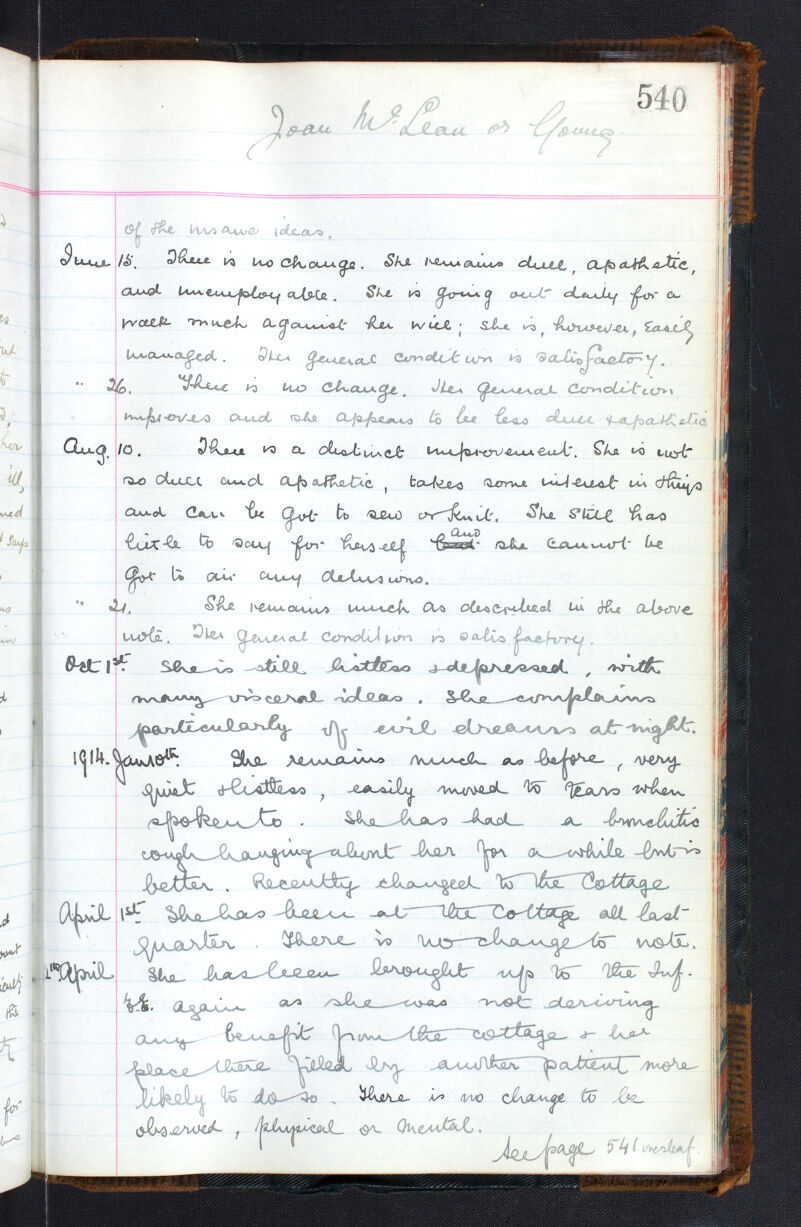 540
Joan Mc. Lean or Young.
of the insane ideas.
June 15. There is no change. She remains dull, apathetic,
and unemployable. She is going out daily for a
walk much against her will; she is, however, easily
managed. Her general condition is satisfactory.
" 26. There is no change. Her general condition
improves and she appears to be less dull & apathetic
Aug. 10. There is a distinct improvement. She is not
so dull and apathetic, takes some interest in things
and can be got to sew or knit. She still has
little to say for herself but and she cannot be
got to air any delusions.
" 21. She remains much as described in the above
note. Her general condition is satisfactory.
Oct 1st. She is still listless & depressed, with
many visceral ideas. She complains
particularly of evil dreams at night.
1914. Jan 10th. She remains much as before, very
quiet & listless, easily moved to tears when
spoken to. She has had a bronchitic
cough hanging about her for a while but is
better. Recently changed to the Cottage
April 1st. She has been at the Cottage all last
quarter. There is no change to note.
April She has been brought up to the Inf.
again as she was not deriving
any benefit from the cottage & her
place there filled by another patient more
likely to do so. There is no change to be
observed, physical or mental.
See page 541 overleaf.